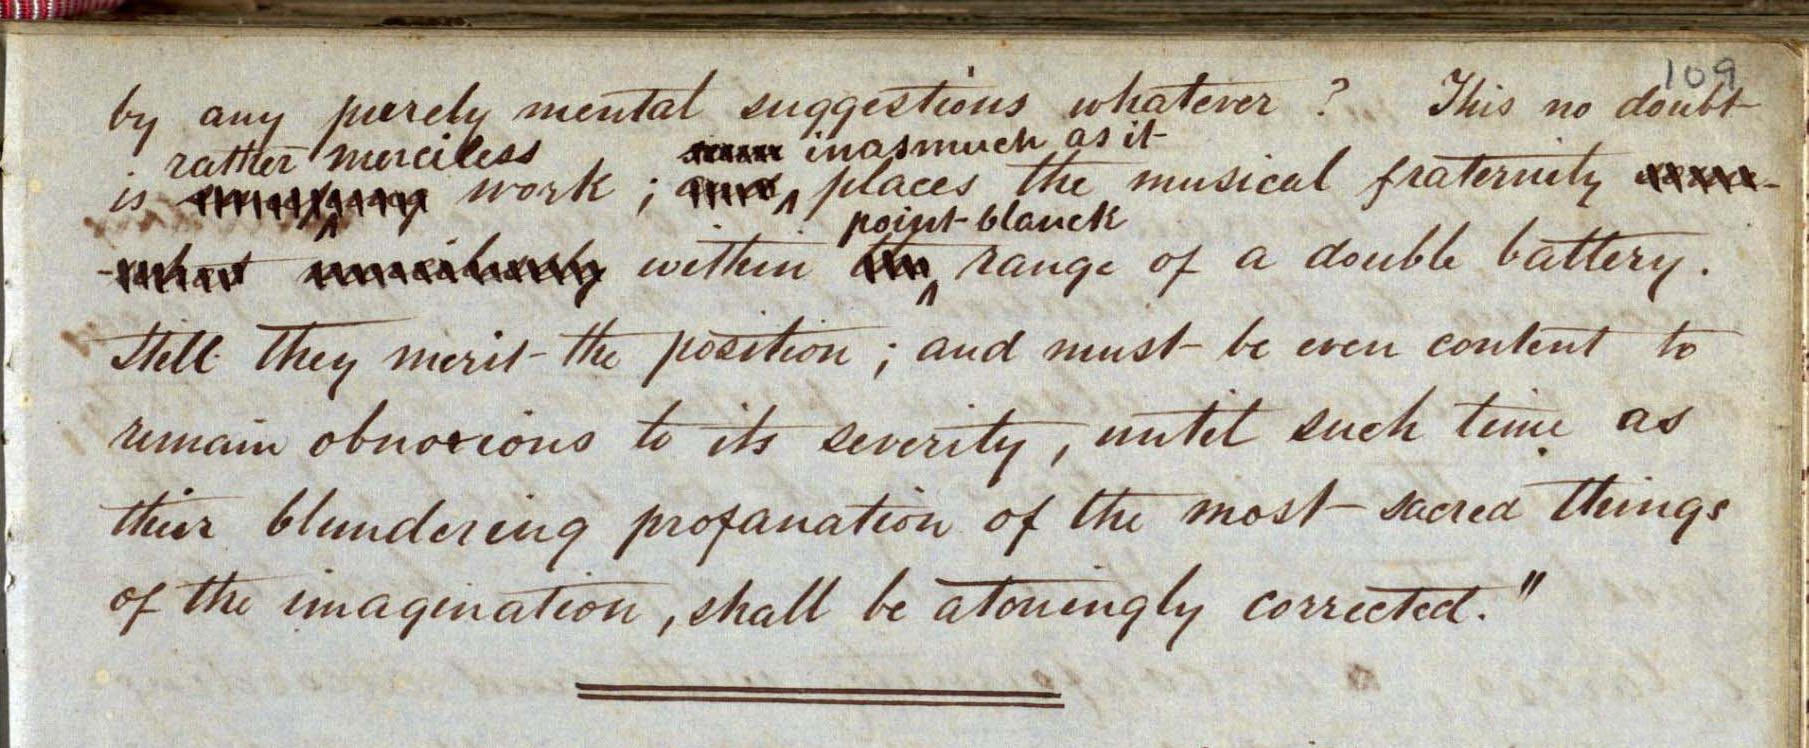 109
by any purely mental suggestions whatever ? This no doubt
rather merciless inasmuch as it
is work ; places the musical fraternity
point-blanck
within range of a double battery.
Still they merit the position ; and must be even content to
remain obnoxious to its severity, until such time as
their blundering profanation of the most sacred things
of the imagination, shall be atoningly corrected."